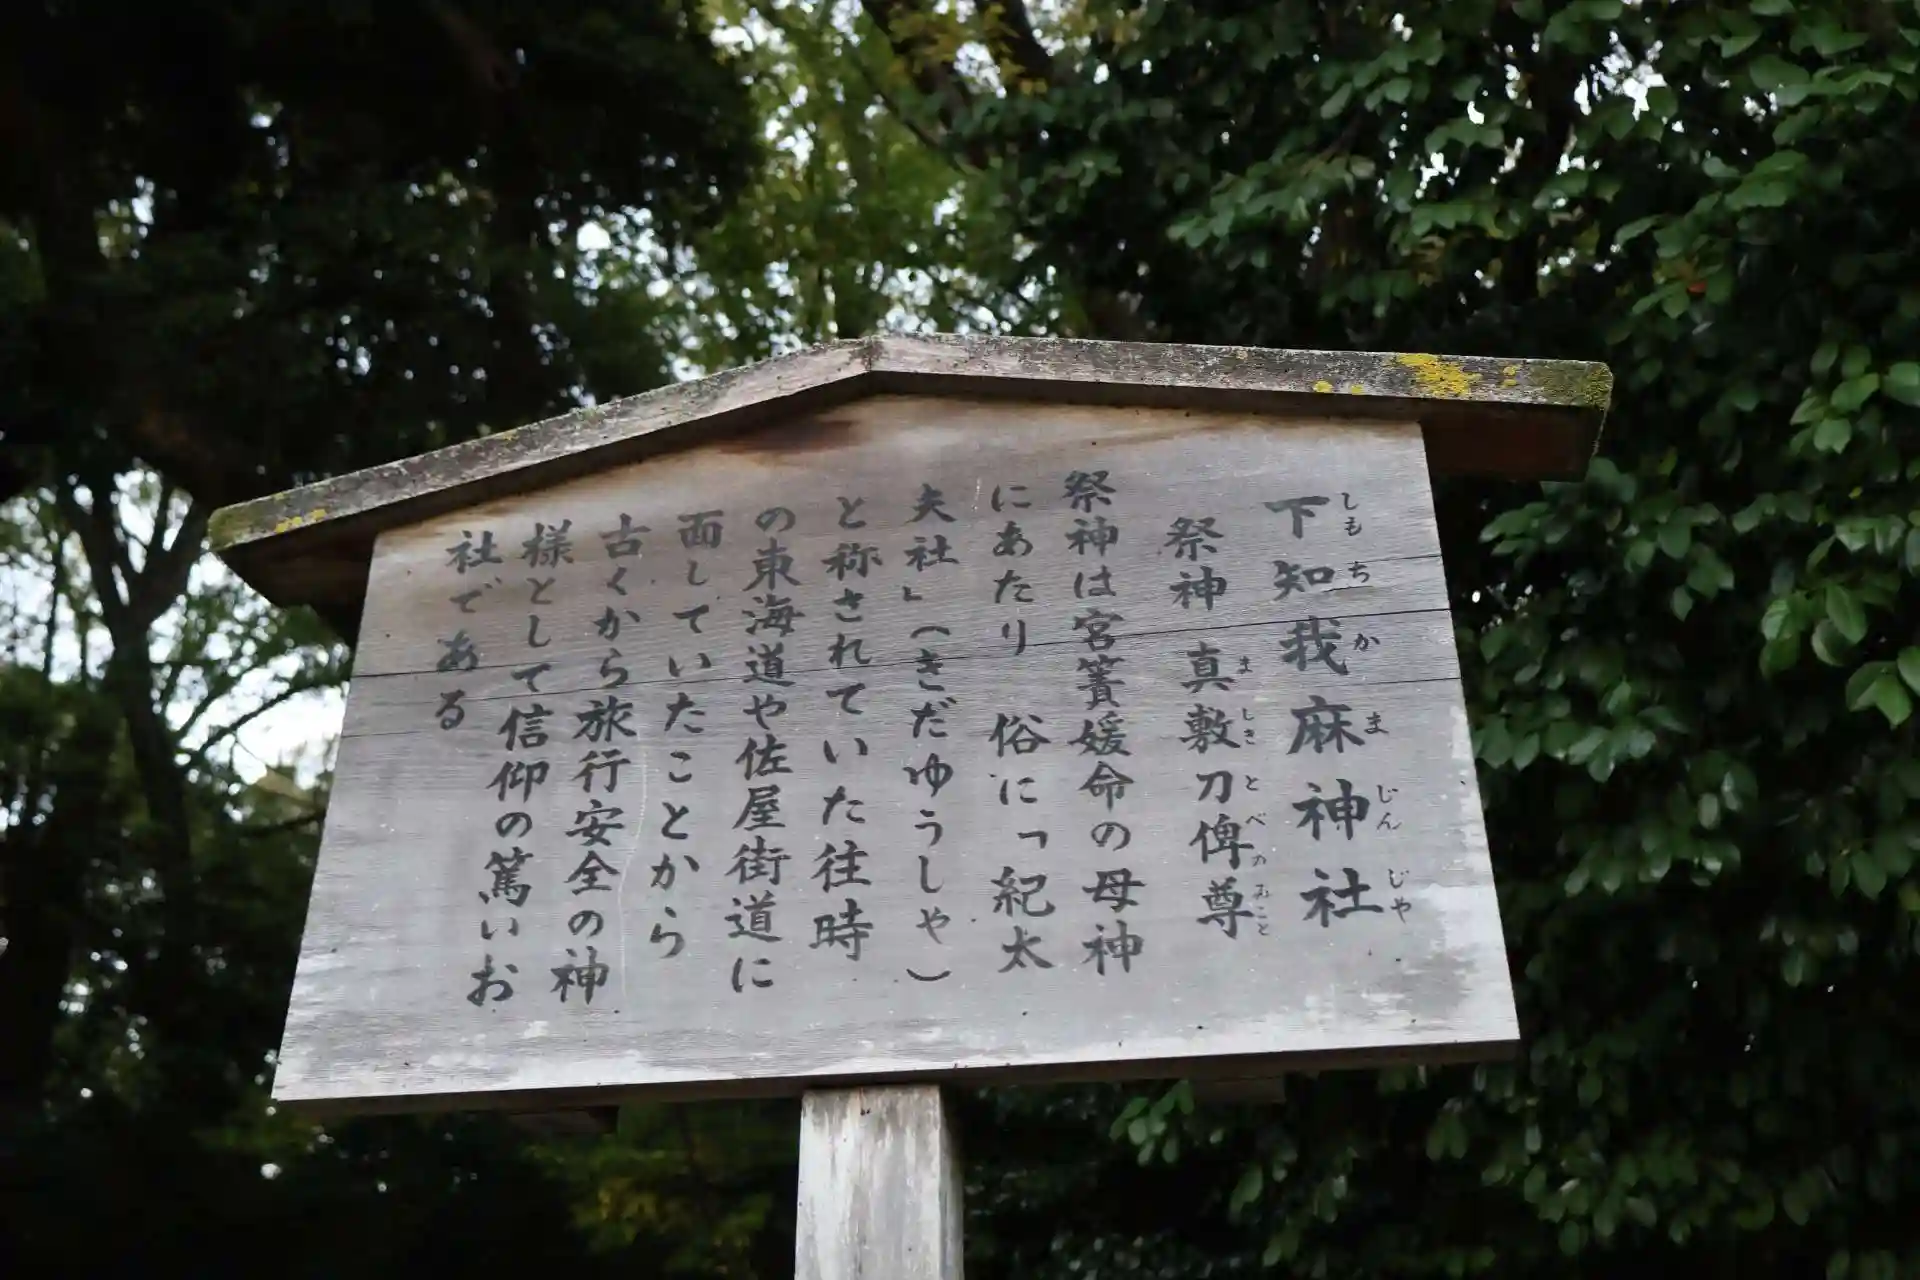 下知我麻神社
しもちかまじんじや
祭神　真敷刀俾尊
ましきとべのみこと
祭神は宮簀媛命の母神
にあたり　俗に「紀太
夫社」（きだゆうしゃ）
と称されていた往時
の東海道や佐屋街道に
面していたことから
古くから旅行安全の神
様として信仰の篤いお
社である